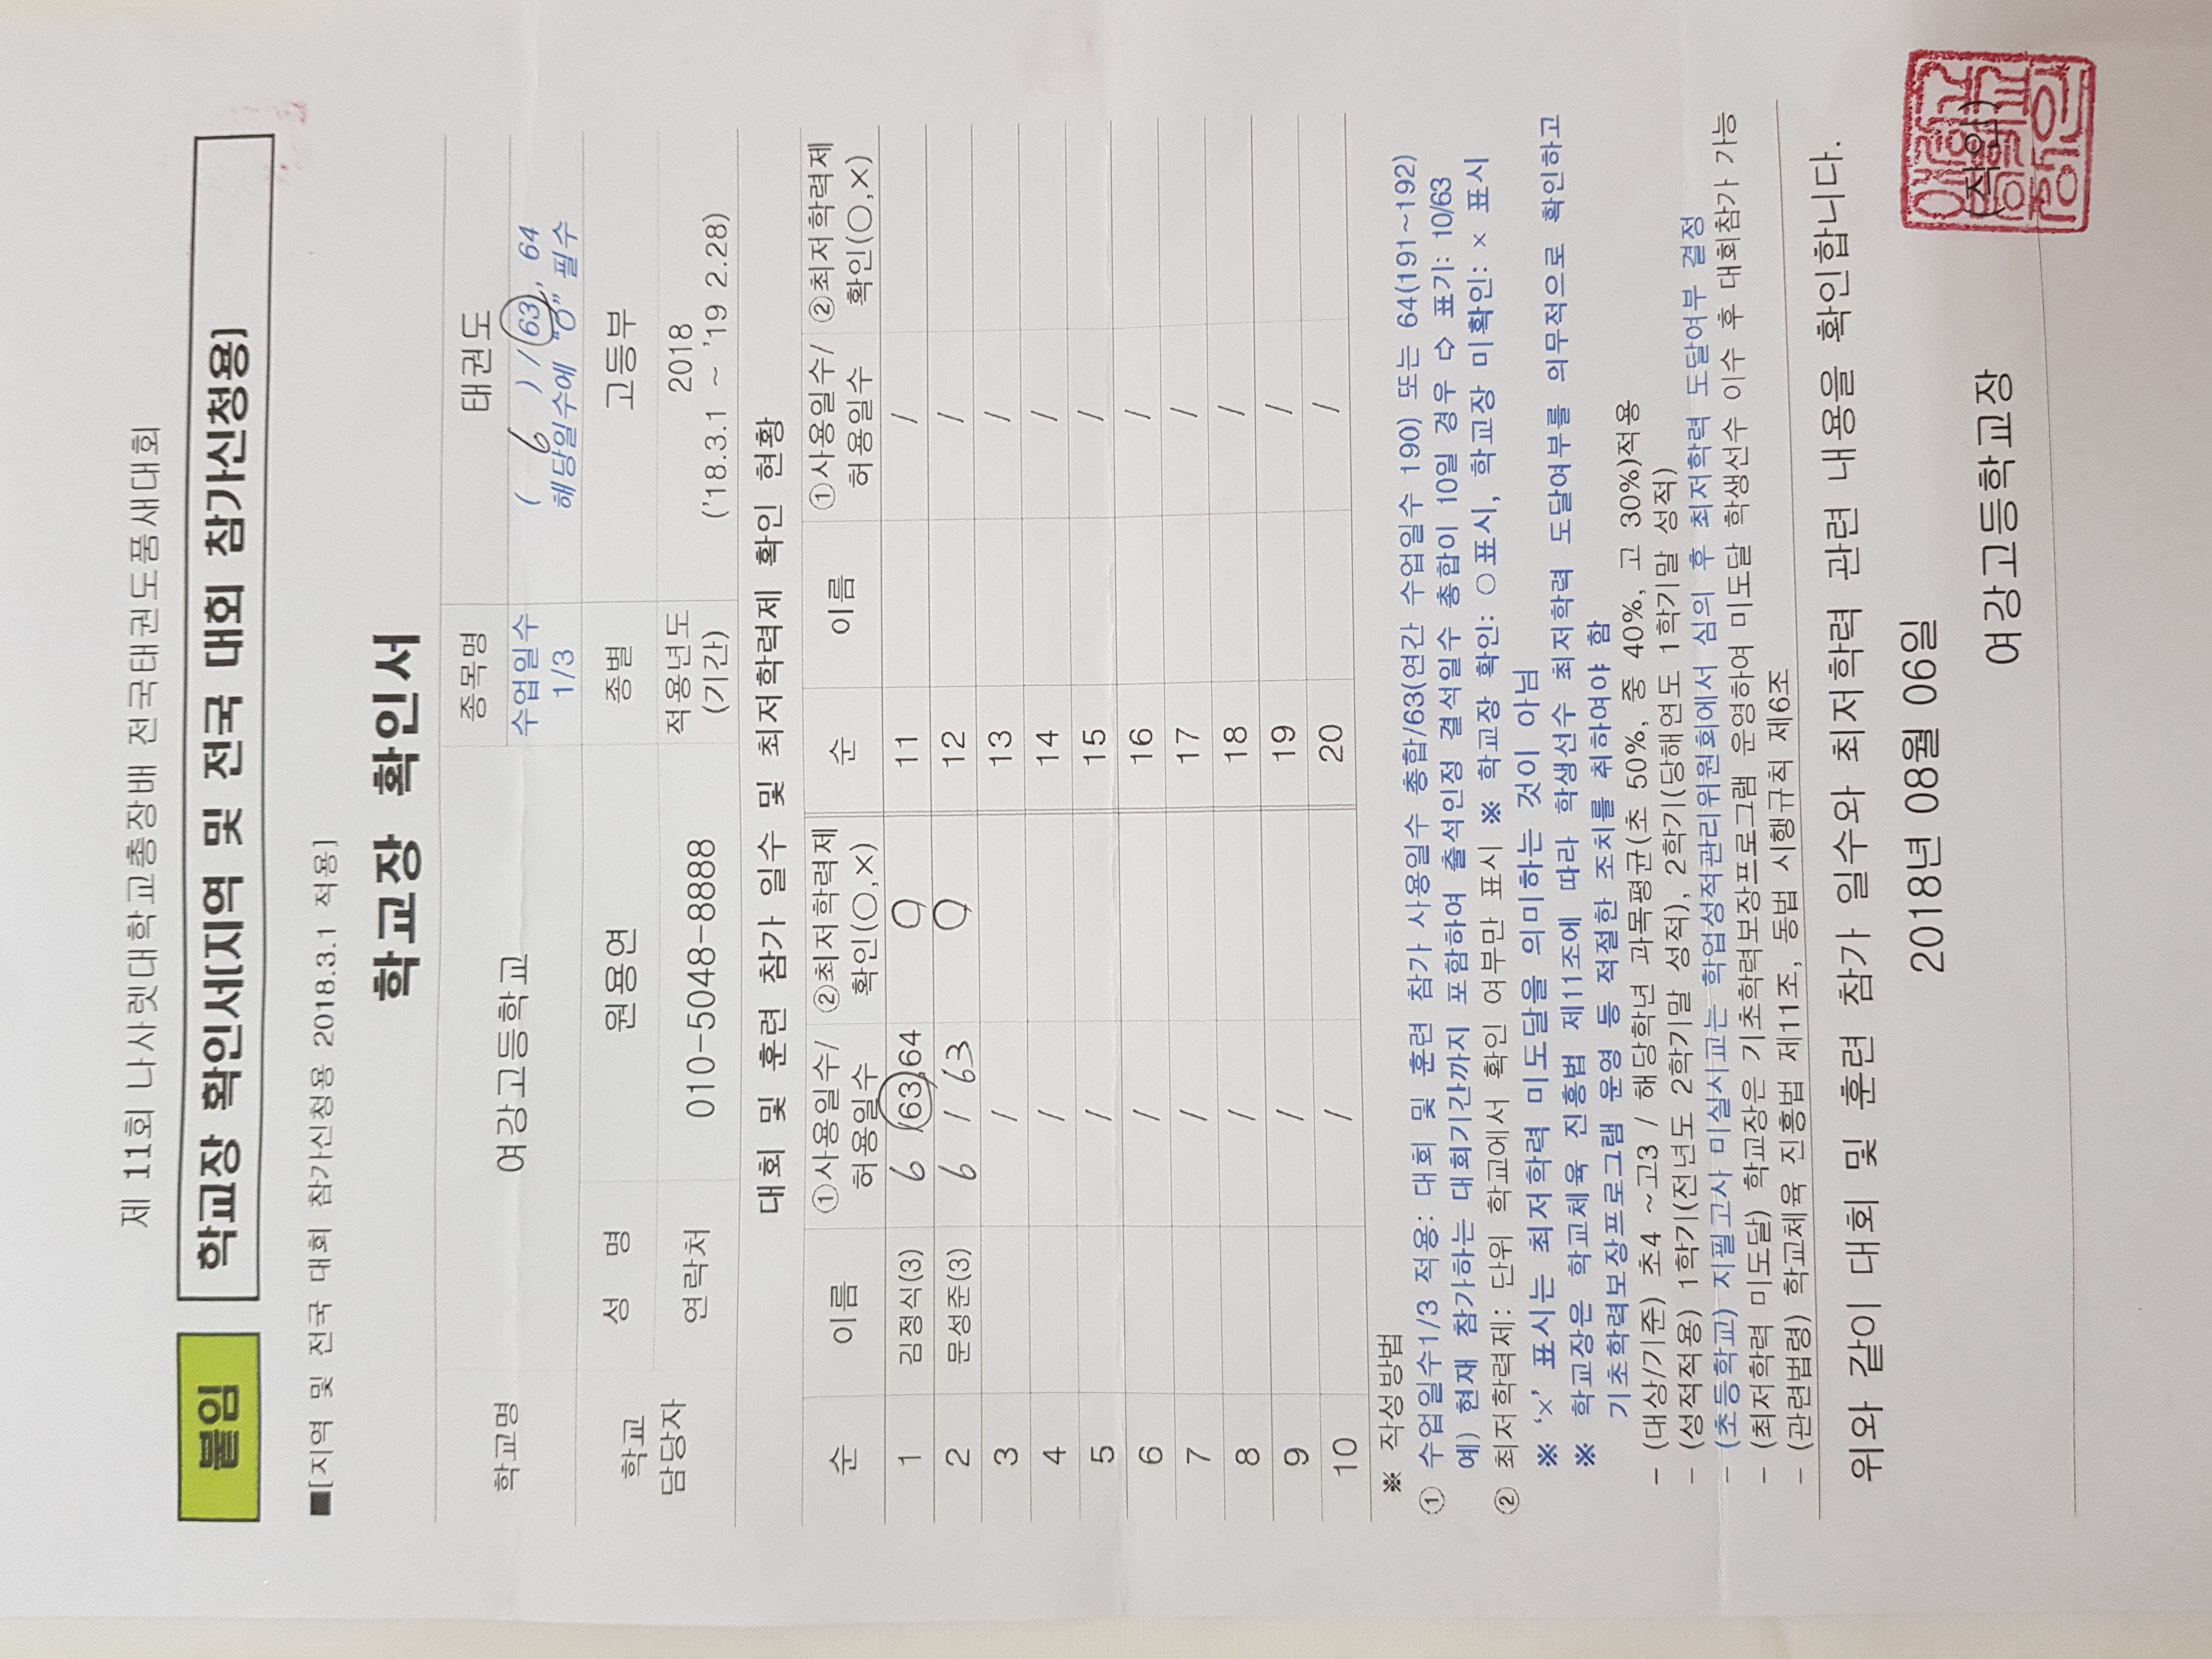 제 11회 나사렛대학교총장배 전국태권도품새대회
붙임 학교장 확인서[지역 및 전국 대회 참가신청용]
■[지역 및 전국 대회 참가신청용 2018.3.1 적용]
학교장 확인서
학교명 여강고등학교 종목명 태권도
수업일수 1/3 ( 6 ) / 63, 64
해당일수에 "O" 필수
학교 담당자 성 명 원용연 종별 고등부
연락처 010-5048-8888 적용년도 (기간) 2018
('18.3.1 ~ '19 2.28)
대회 및 훈련 참가 일수 및 최저학력제 확인 현황
순 이름 ①사용일수/허용일수 ②최저학력제 확인(○,×) 순 이름 ①사용일수/허용일수 ②최저학력제 확인(○,×)
1 김정식(3) 6 /63,64 O 11 /
2 문성준(3) 6 / 63 O 12 /
3 / 13 /
4 / 14 /
5 / 15 /
6 / 16 /
7 / 17 /
8 / 18 /
9 / 19 /
10 / 20 /
※ 작성방법
① 수업일수1/3 적용: 대회 및 훈련 참가 사용일수 총합/63(연간 수업일수 190) 또는 64(191~192)
예) 현재 참가하는 대회기간까지 포함하여 출석인정 결석일수 총합이 10일 경우 ⇨ 표기: 10/63
② 최저학력제: 단위 학교에서 확인 여부만 표시 ※ 학교장 확인: ○표시, 학교장 미확인: × 표시
※ '×' 표시는 최저학력 미도달을 의미하는 것이 아님
※ 학교장은 학교체육 진흥법 제11조에 따라 학생선수 최저학력 도달여부를 의무적으로 확인하고
기초학력보장프로그램 운영 등 적절한 조치를 취하여야 함
- (대상/기준) 초4 ~고3 / 해당학년 과목평균(초 50%, 중 40%, 고 30%)적용
- (성적적용) 1학기(전년도 2학기말 성적), 2학기(당해연도 1학기말 성적)
- (초등학교) 지필고사 미실시교는 학업성적관리위원회에서 심의 후 최저학력 도달여부 결정
- (최저학력 미도달) 학교장은 기초학력보장프로그램 운영하여 미도달 학생선수 이수 후 대회참가 가능
- (관련법령) 학교체육 진흥법 제11조, 동법 시행규칙 제6조
위와 같이 대회 및 훈련 참가 일수와 최저학력 관련 내용을 확인합니다.
2018년 08월 06일
여강고등학교장 (직인)